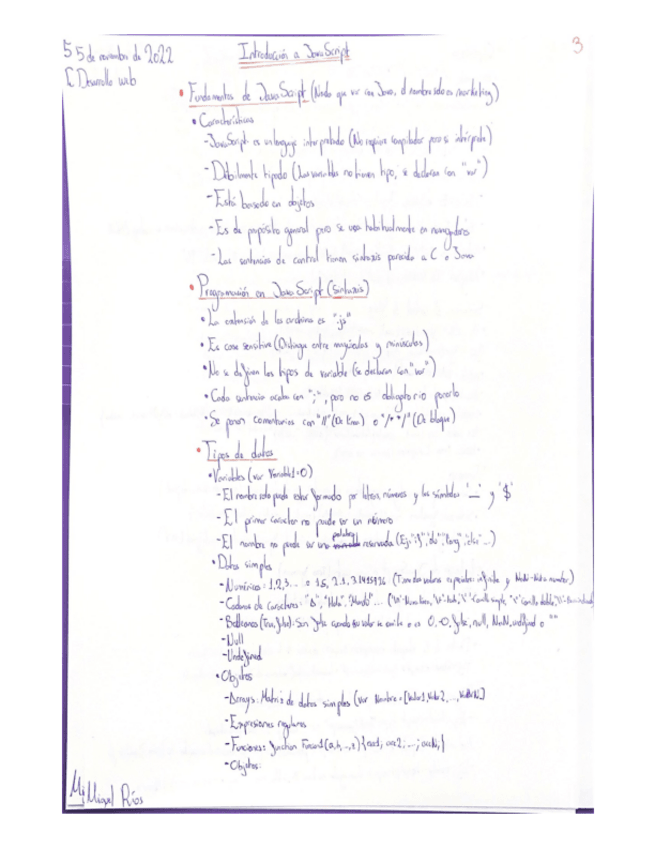 5 5 de noviembre de 2022
Introducción a JavaScript
3
C Desarrollo web
• Fundamentos de JavaScript (Nada que ver con Java, el nombre solo es marketing)
• Características
- JavaScript es un lenguaje interpretado (No requiere compilador pero si intérprete)
- Débilmente tipado (Las variables no tienen tipo, se declaran con "var")
- Está basado en objetos
- Es de propósito general pero se usa habitualmente en navegadores
- Las sentencias de control tienen sintaxis parecida a C o Java
• Programación en JavaScript (Sintaxis)
• La extensión de los archivos es ".js"
• Es case sensitive (Distingue entre mayúsculas y minúsculas)
• No se definen los tipos de variable (se declaran con "var")
• Cada sentencia acaba con ";", pero no es obligatorio ponerlo
• Se ponen comentarios con "//" (De línea) o "/* */" (De bloque)
• Tipos de datos
• Variables (var Variable1=0)
- El nombre solo puede estar formado por letras, números y los símbolos '_' y '$'
- El primer caracter no puede ser un número
- El nombre no puede ser una palabra reservada (Ej: "if", "do", "long", "else"...)
• Datos simples
- Numéricos: 1,2,3... o 1.5, 2.1, 3.1415926 (Tiene dos valores especiales: infinito y NaN-Not a number)
- Cadenas de caracteres: "A", "Hola", "Mundo"... ("\n"-Nueva línea, "\t"-Tab, "\'"-Comilla simple, "\""-comilla doble, "\\"-Barra invertida)
- Booleanos (True, false): Son false cuando su valor se omite o es 0, -0, false, null, NaN, undefined o ""
- Null
- Undefined
• Objetos
- Arrays: Matriz de datos simples (var Nombre=[Valor1, Valor2, ..., ValorN])
- Expresiones regulares
- Funciones: function Funcion1(a,b,...,z){acc1; acc2; ...; accN;}
- Objetos:
Mj Miguel Ríos